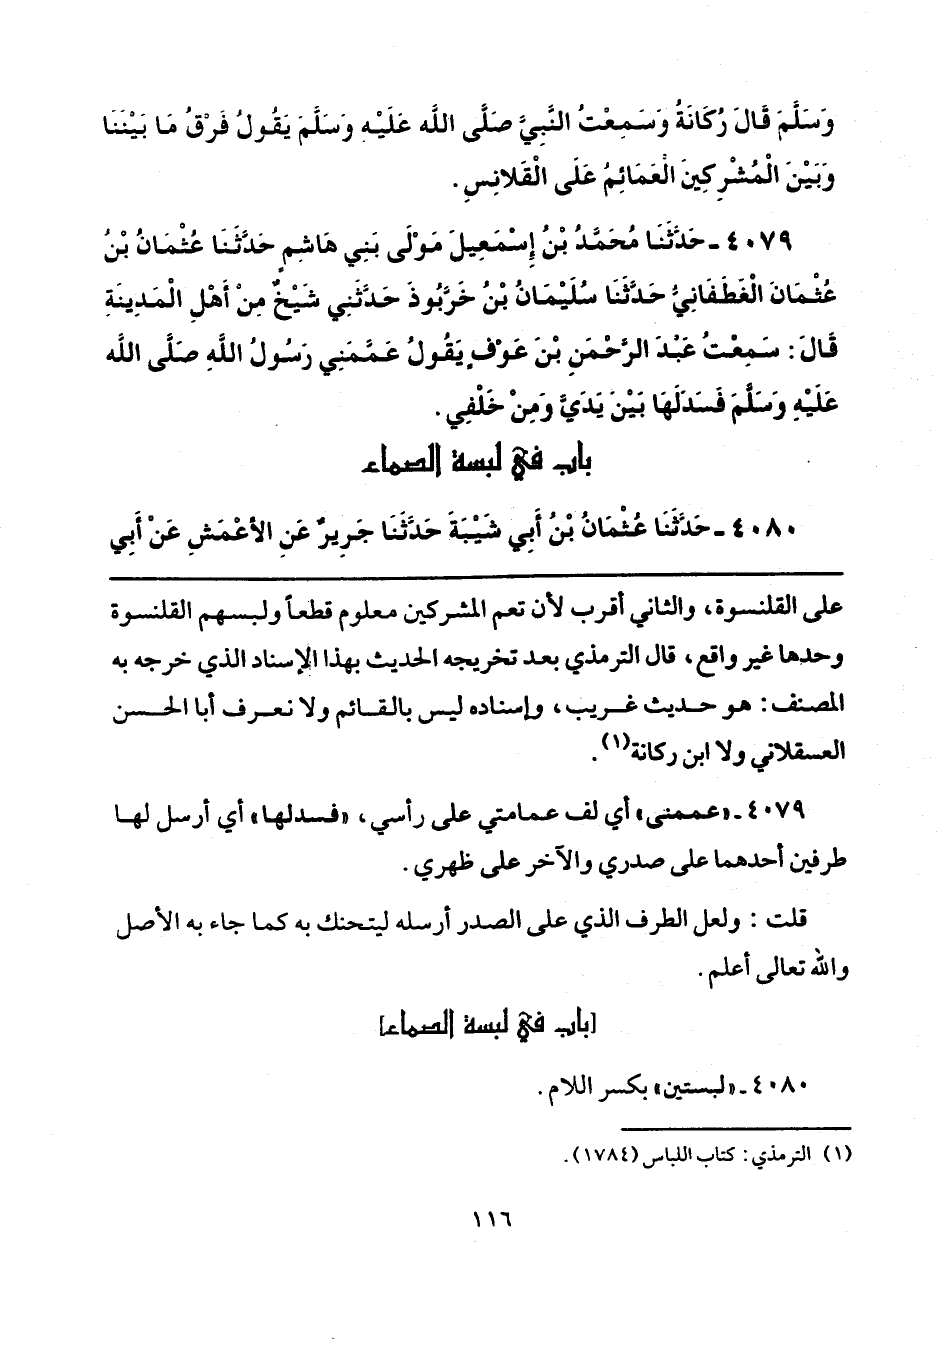 وَسَلَّمَ قَالَ رُكَانَةُ وَسَمِعْتُ النَّبِيَّ صَلَّى اللَّه عَلَيْهِ وَسَلَّمَ يَقُولُ فَرْقُ مَا بَيْنَنَا
وَبَيْنَ الْمُشْرِكِينَ الْعَمَائِمُ عَلَى الْقَلانِسِ.
٤٠٧٩ ـ حَدَّثَنَا مُحَمَّدُ بْنُ إِسْمَعِيلَ مَوْلَى بَنِي هَاشِمٍ حَدَّثَنَا عُثْمَانُ بْنُ
عُثْمَانَ الْغَطَفَانِيُّ حَدَّثَنَا سُلَيْمَانُ بْنُ خَرَّبُوذَ حَدَّثَنِي شَيْخٌ مِنْ أَهْلِ الْمَدِينَةِ
قَالَ: سَمِعْتُ عَبْدَ الرَّحْمَنِ بْنَ عَوْفٍ يَقُولُ عَمَّمَنِي رَسُولُ اللَّهِ صَلَّى اللَّه
عَلَيْهِ وَسَلَّمَ فَسَدَلَهَا بَيْنَ يَدَيَّ وَمِنْ خَلْفِي.
باب في لبسة الصماء
٤٠٨٠ ـ حَدَّثَنَا عُثْمَانُ بْنُ أَبِي شَيْبَةَ حَدَّثَنَا جَرِيرٌ عَنِ الأَعْمَشِ عَنْ أَبِي
على القلنسوة، والثاني أقرب لأن تعم المشركين معلوم قطعاً ولبسهم القلنسوة
وحدها غير واقع، قال الترمذي بعد تخريجه الحديث بهذا الإسناد الذي خرجه به
المصنف: هو حديث غريب، وإسناده ليس بالقائم ولا نعرف أبا الحسن
العسقلاني ولا ابن ركانة(١).
٤٠٧٩ ـ «عممنى» أي لف عمامتي على رأسي، «فسدلها» أي أرسل لها
طرفين أحدهما على صدري والآخر على ظهري.
قلت: ولعل الطرف الذي على الصدر أرسله ليتحنك به كما جاء به الأصل
والله تعالى أعلم.
[باب في لبسة الصماء]
٤٠٨٠ ـ «لبستين» بكسر اللام.
(١) الترمذي: كتاب اللباس (١٧٨٤).
١١٦